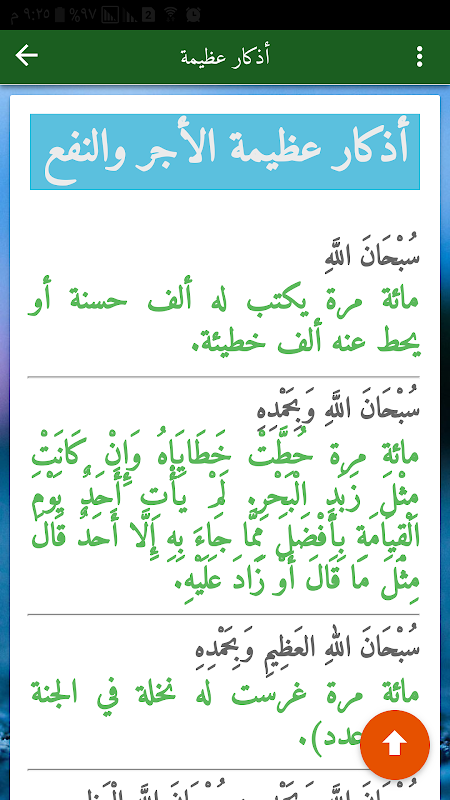 ٩:٢٥ م ٩٧%
أذكار عظيمة
أذكار عظيمة الأجر والنفع
سُبْحَانَ اللَّهِ
مائة مرة يكتب له ألف حسنة أو
يحط عنه ألف خطيئة.
سُبْحَانَ اللَّهِ وَبِحَمْدِهِ
مائة مرة حُطَّتْ خَطَايَاهُ وَإِنْ كَانَتْ
مِثْلَ زَبَدِ الْبَحْرِ. لَمْ يَأْتِ أَحَدٌ يَوْمَ
الْقِيَامَةِ بِأَفْضَلَ مِمَّا جَاءَ بِهِ إِلَّا أَحَدٌ قَالَ
مِثْلَ مَا قَالَ أَوْ زَادَ عَلَيْهِ.
سُبْحَانَ اللهِ العَظِيمِ وَبِحَمْدِهِ
مائة مرة غرست له نخلة في الجنة
عدد).